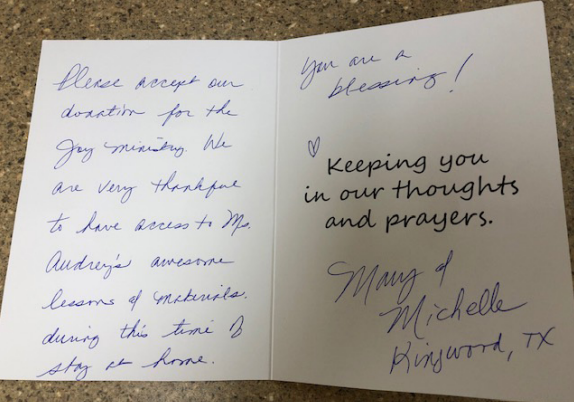 Please accept our
donation for the
Joy ministry. We
are very thankful
to have access to Ms.
Audrey's awesome
lessons & materials.
during this time of
stay at home.
You are a
blessing!
Keeping you
in our thoughts
and prayers.
Mary &
Michelle
Kingwood, TX